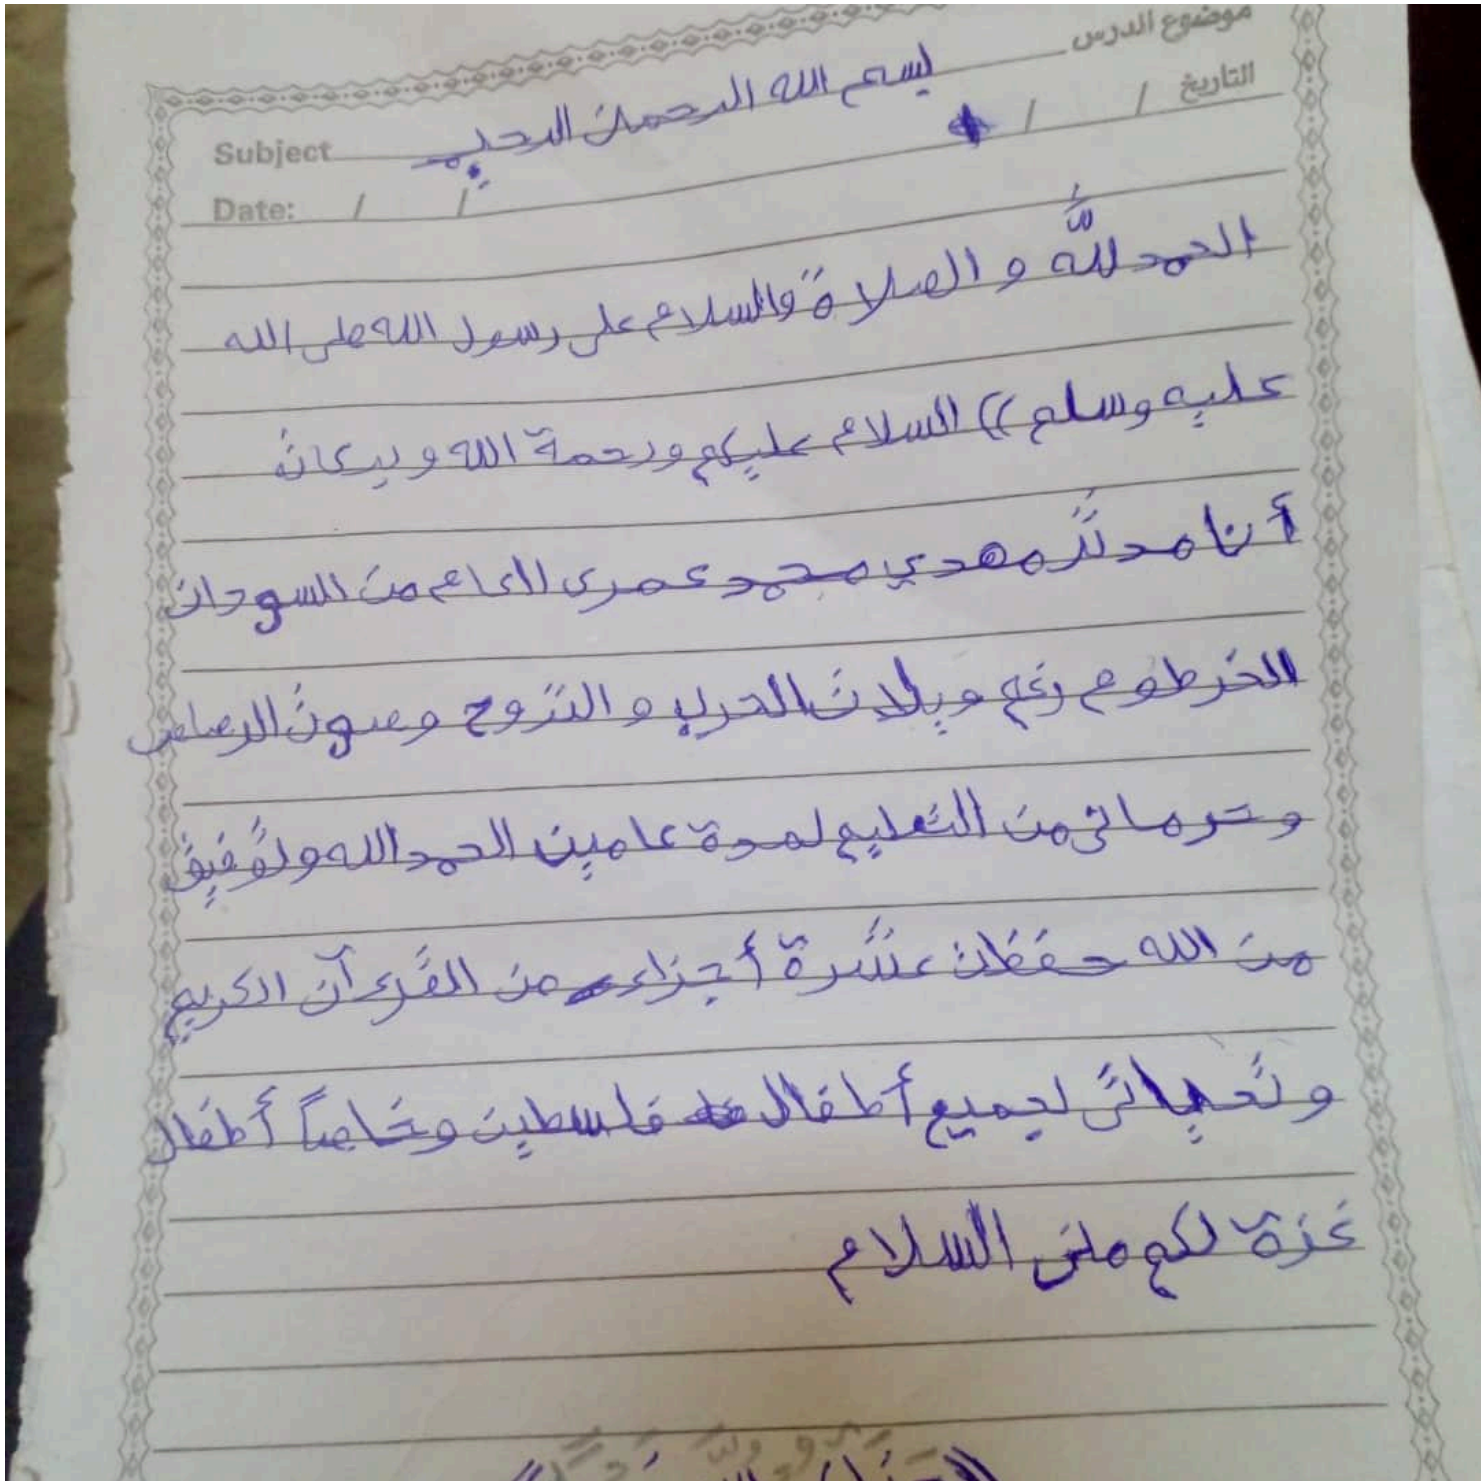 موضوع الدرس
التاريخ / /
بسم الله الرحمن الرحيم
Subject
Date: / /
الحمد للَّه و الصلاة والسلام على رسول الله صلى الله
عليه وسلم )) السلام عليكم ورحمة الله وبركاتة
أنا مدثر مهدي محمد عمرى من السودان
الخرطوم رغم ويلات الحرب و النزوح وصوت الرصاص
وحرمانى من التعليم لمدة عامين الحمد الله وتوفيق
من الله حفظت عشرة أجزاء من القرءآن الكريم
وتحياتى لجميع أطفال فلسطين وخاصاً أطفال
غزة لكم منى السلام